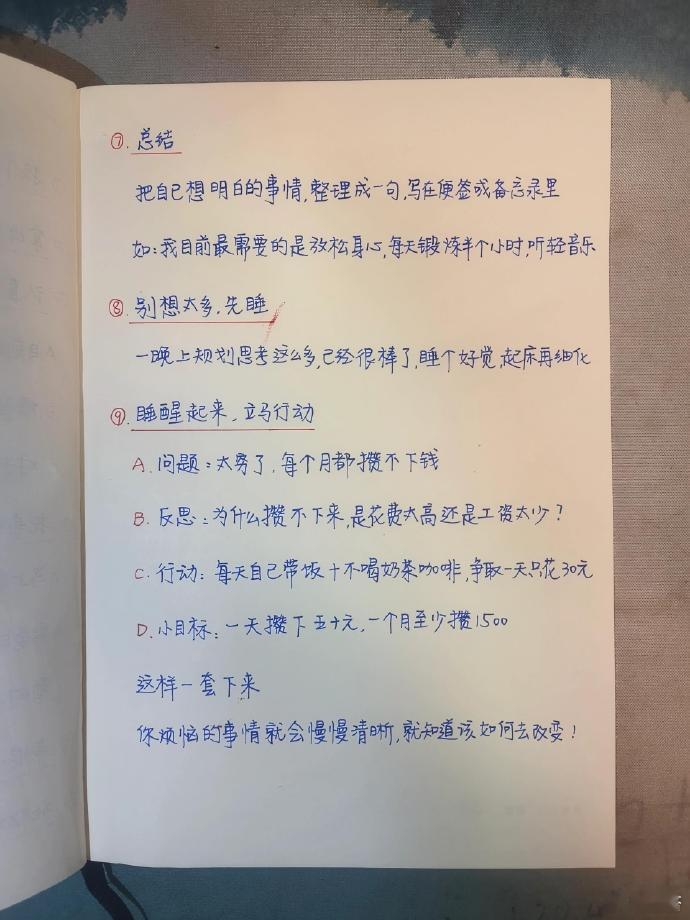 ⑦. 总结
把自己想明白的事情,整理成一句,写在便签或备忘录里
如:我目前最需要的是放松身心,每天锻炼半个小时,听轻音乐
⑧. 别想太多,先睡
一晚上规划思考这么多,已经很棒了,睡个好觉,起床再细化
⑨. 睡醒起来,立马行动
A. 问题:太穷了,每个月都攒不下钱
B. 反思:为什么攒不下来,是花费太高还是工资太少?
C. 行动:每天自己带饭+不喝奶茶咖啡,争取一天只花30元
D. 小目标:一天攒下五十元,一个月至少攒1500
这样一套下来
你烦恼的事情就会慢慢清晰,就知道该如何去改变!